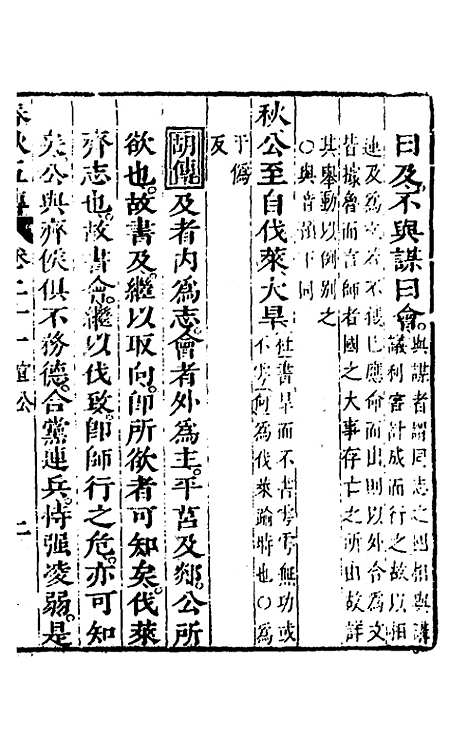 曰及不與謀曰會。與謀者謂同志之國相與講
議利害計成而行之故以相
連及為文若不獲已應命而出則以外合為文
皆據魯而言師者國之大事存亡之所由故詳
其舉動以例別之
○與音預下同
秋公至自伐萊大旱杜書旱而不書雩雩無功或
不雩何為伐萊踰時也○為
于偽
反
胡傳及者内為志。會者外為主。平莒及郯。公所
欲也。故書及。繼以取向。即所欲者可知矣。伐萊
齊志也。故書會。繼以伐致。即師行之危。亦可知
矣。公與齊侯俱不務德。合黨連兵。恃强凌弱。是
春秋五傳 卷二十一 宣公 二